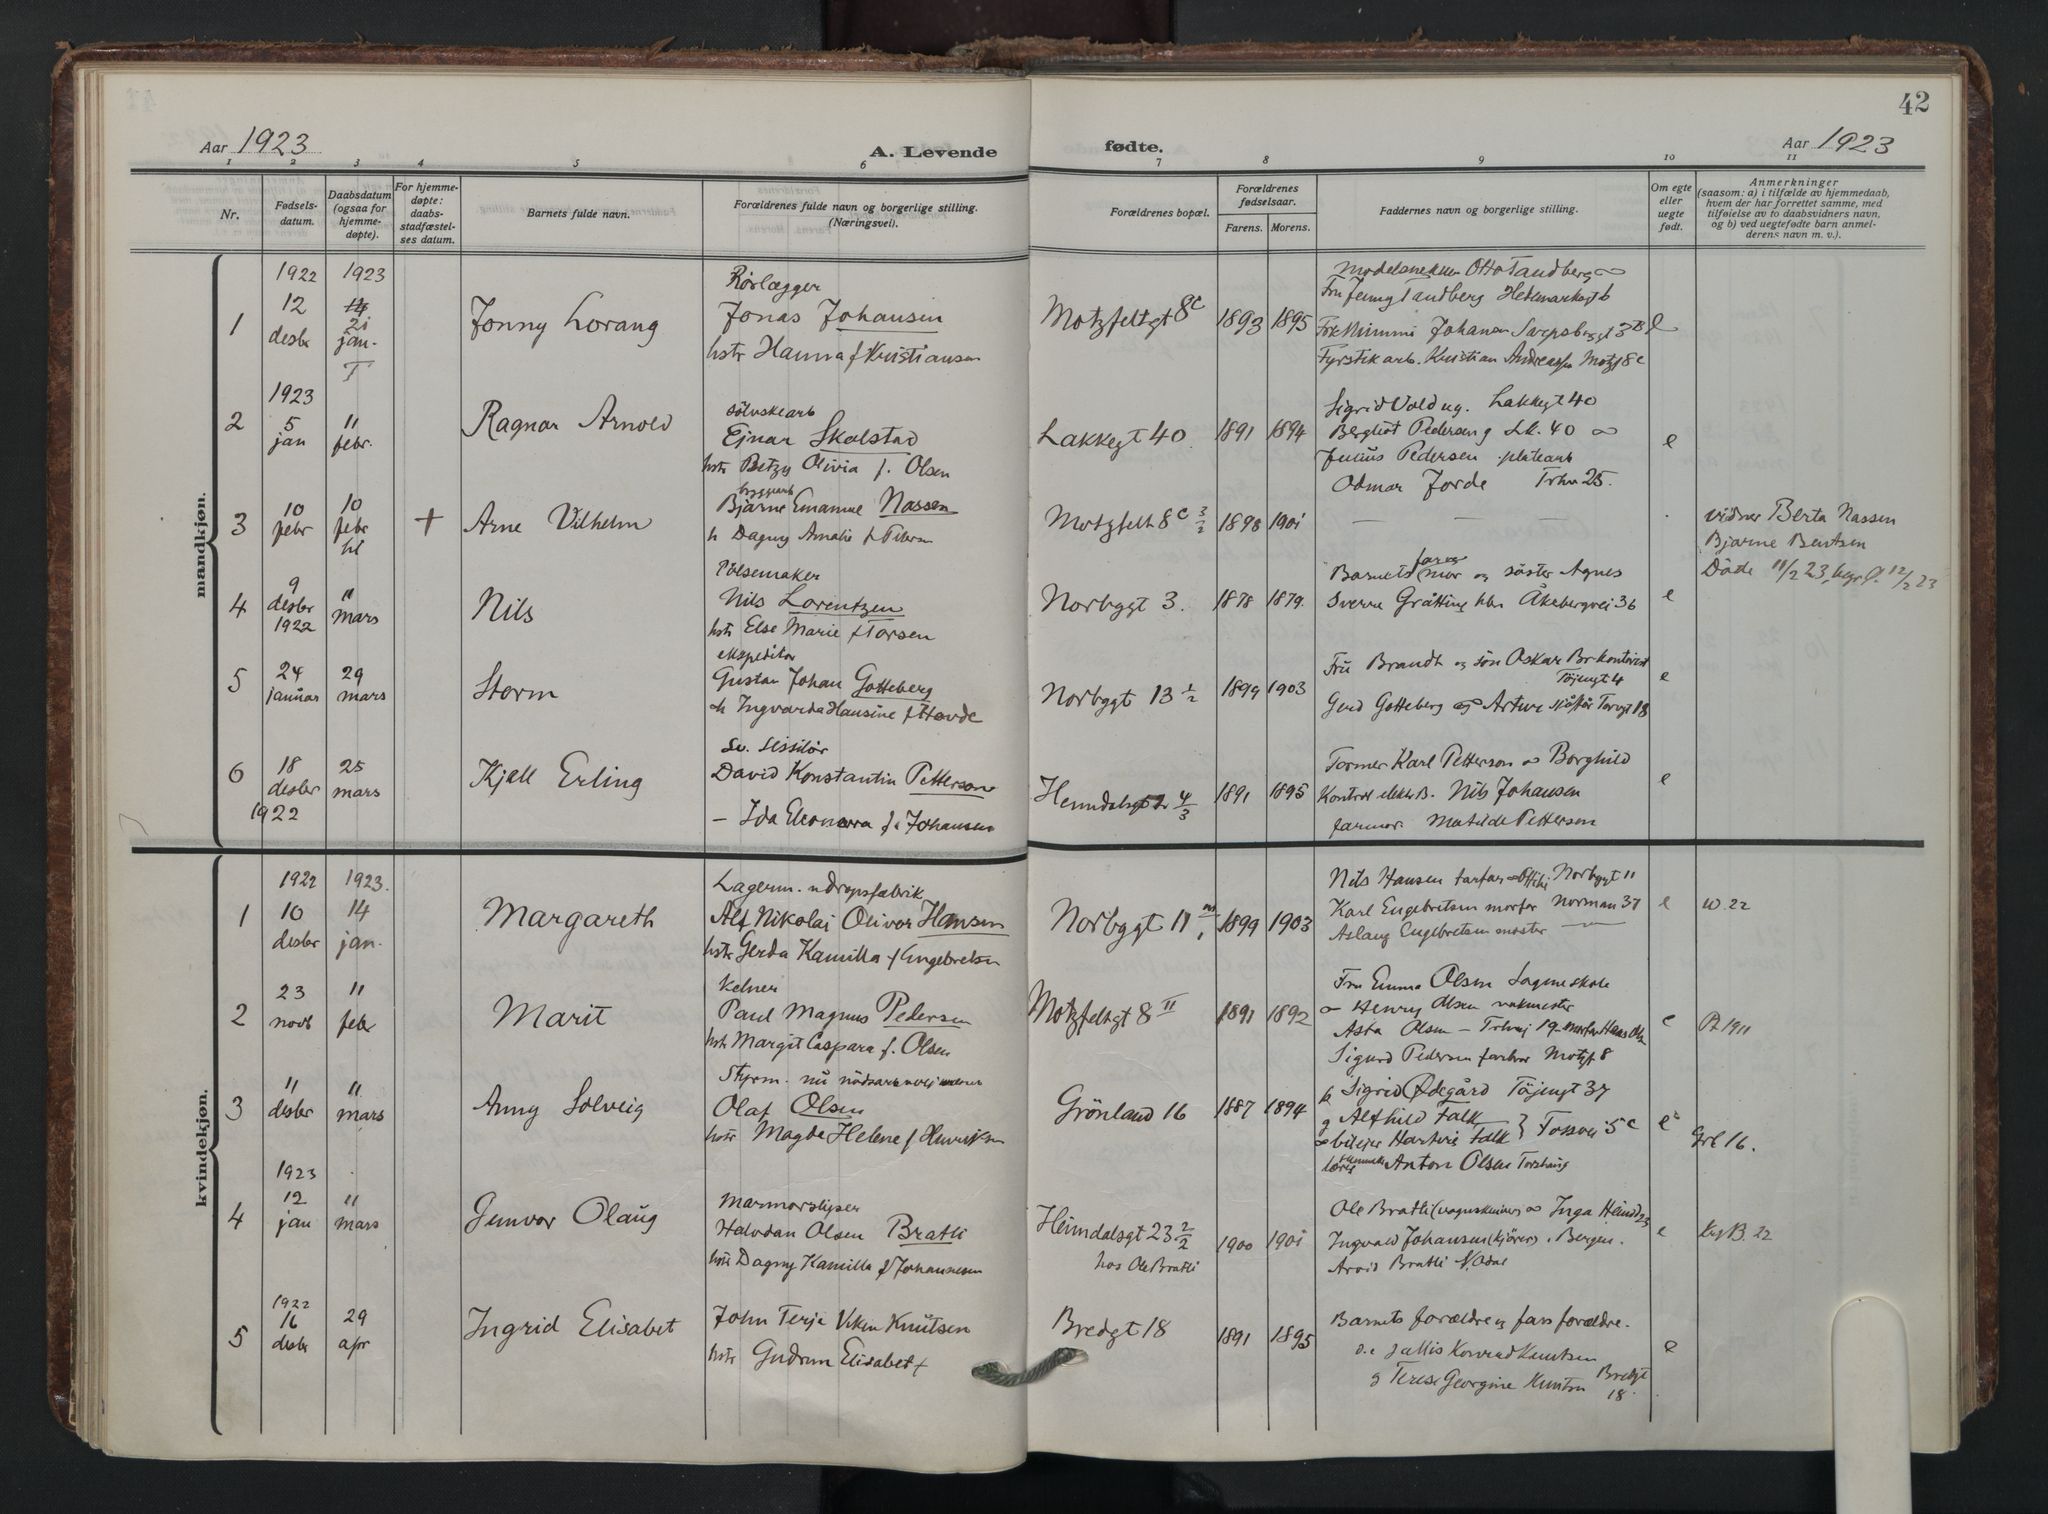 42
Aar 1923
A. Levende fødte.
Aar 1923
1 2 3 4 5 6 7 8 9 10 11
Nr.
Fødsels-
datum.
Daabsdatum
(ogsaa for
hjemme-
døpte).
For hjemme-
døpte:
daabs-
stadfæstel-
ses datum.
Barnets fulde navn.
Forældrenes fulde navn og borgerlige stilling.
(Næringsvei).
Forældrenes bopæl.
Forældrenes
fødselsaar.
Farens. Morens.
Faddernes navn og borgerlige stilling.
Om egte
eller
uegte
født.
Anmerkninger
(saasom: a) i tilfælde av hjemmedaab,
hvem der har forrettet samme, med
tilføielse av to daabsvidners navn,
og b) ved uegtefødte barn anmel-
derens navn m. v.).
mandkjøn.
1
1922
12
desbr
1923
14
21
jan.
T
Jonny Lorang
Rörlægger
Jonas Johansen
hstr Hanna f Kristiansen
Motzfeltgt 8c
1893 1895
Otto Tandberg
Fru Jenny Tandberg Hedemarkgt 6
Mimmi Johansen
Fyrstikarb. Kristian Motzf 8c
2
1923
5
jan
11
febr.
Ragnar Arnold
sölvskearb
Ejnar Skolstad
hstr Betzy Olivia f. Olsen
Lakkegt 40
1891 1894
Sigrid Vold ug. Lakkegt 40
Bergliot Pedersen g Lk. 40 ∞
Julius Pedersen platearb
Odmar Forde Trhv 25.
e
3
10
febr
10
febr
ht
+
Arne Vilhelm
byggarb
Bjarne Emanuel Nassen
h Dagny Amalie f Petersen
Motzfelt 8c 3/2
1898 1901
vidner Berta Nassen
Bjarne Bentsen
Döde 11/2 23, begr. 12/2 23
4
9
desbr
1922
11
mars
Nils
Pölsemaker
Nils Lorentzen
hstr Else Marie f Torsen
Norbygt 3.
1878 1879.
Barnets farver mor og söster Agnes
Sverre Gråtting Åkebergvei 36
e
5
24
januar
29
mars
Storm
ekspeditör
Gustav Johan Gotteberg
h Ingvarda Hansine f Hovde
Norbygt 13 1/2
1899 1903
Fru Brandt og sön Oskar Br kontorist
Töjengt 4
Gerd Gotteberg og Artur Torvgt 18
e
6
18
desbr
1922
25
mars
Kjell Erling
David Konstantin Petterson
– Ida Eleonora f. Johansen
Heimdalsgt 4/3
1891 1895
Former Karl Petterson ∞ Borghild
Kontrol Nils Johansen
farmor Matilde Petterson
e
kvindekjøn.
1
1922
10
desbr
1923.
14
jan.
Margareth
Lagerm. dropsfabrik
Alf Nikolai Oliver Hansen
hstr Gerda Kamilla f Engebretsen
Norbygt 11
1899 1903
Nils Hansen farfar Norbygt 11
Karl Engebretsen morfar Norman 37
Aslaug Engebretsen moster
e
W. 22
2
23
novb
11
febr
Marit
Kelner
Paul Magnus Pedersen
hstr Margit Caspara f. Olsen
Motzfeltgt 8 II
1891 1892
Fru Emma Olsen Sagene skole
∞ Henry Olsen vakmester
Asta Olsen – Trhvej 19 – morfar Hans Olsen
Sigurd Pedersen farbror Motzf 8
e
Pt 1911
3
11
desbr
11
mars
Anny Solveig
Styrm. nu
Olaf Olsen
hstr Magda Helene f Henriksen
Grönland 16
1887 1894
Sigrid Ødegård Töjengt 37
g Alfhild Falk
Falk } Fossvei 5c
Anton Olsen Torshaug
e
Grl 16.
4
1923
12
jan
11
mars
Gunvor Olaug
Marmorsliper
Halvdan Olsen Bratli
hstr Dagny Kamilla f Johannesen
Heimdalsgt 23 2/2
hos Ole Bratli
1900 1901
Ole Bratli ∞ Inga Heimd 23
Ingvald Johansen (kjörer) i Bergen.
Arvid Bratli N. Odal
e
22
5
1922
16
desbr
29
apr
Ingrid Elisabet
John Terje Viken Knutsen
hstr Gudrun Elisabet f
Bredgt 18
1891 1895
Barnets forældre og fars forældre.
Konrad Knutsen
g Terese Georgine Knutsen Bredgt
18.
e